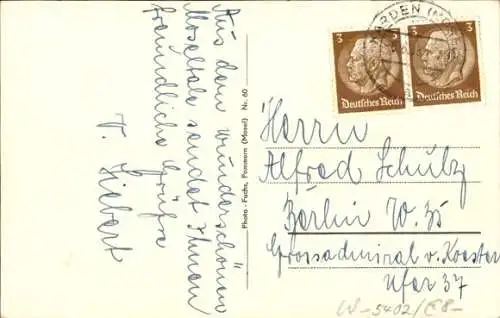 Aus dem wunderschönen
Moseltale sendet Ihnen
freundliche Grüße
V. Siebert
Photo-Fuchs, Pommern (Mosel) Nr. 60
KARDEN (MOSEL)
3
3
Deutsches Reich
3
Deutsches Reich
Herrn
Alfred Schulz
Berlin W. 35
Grossadmiral v. Koester
Ufer 37
W-5402/€8-